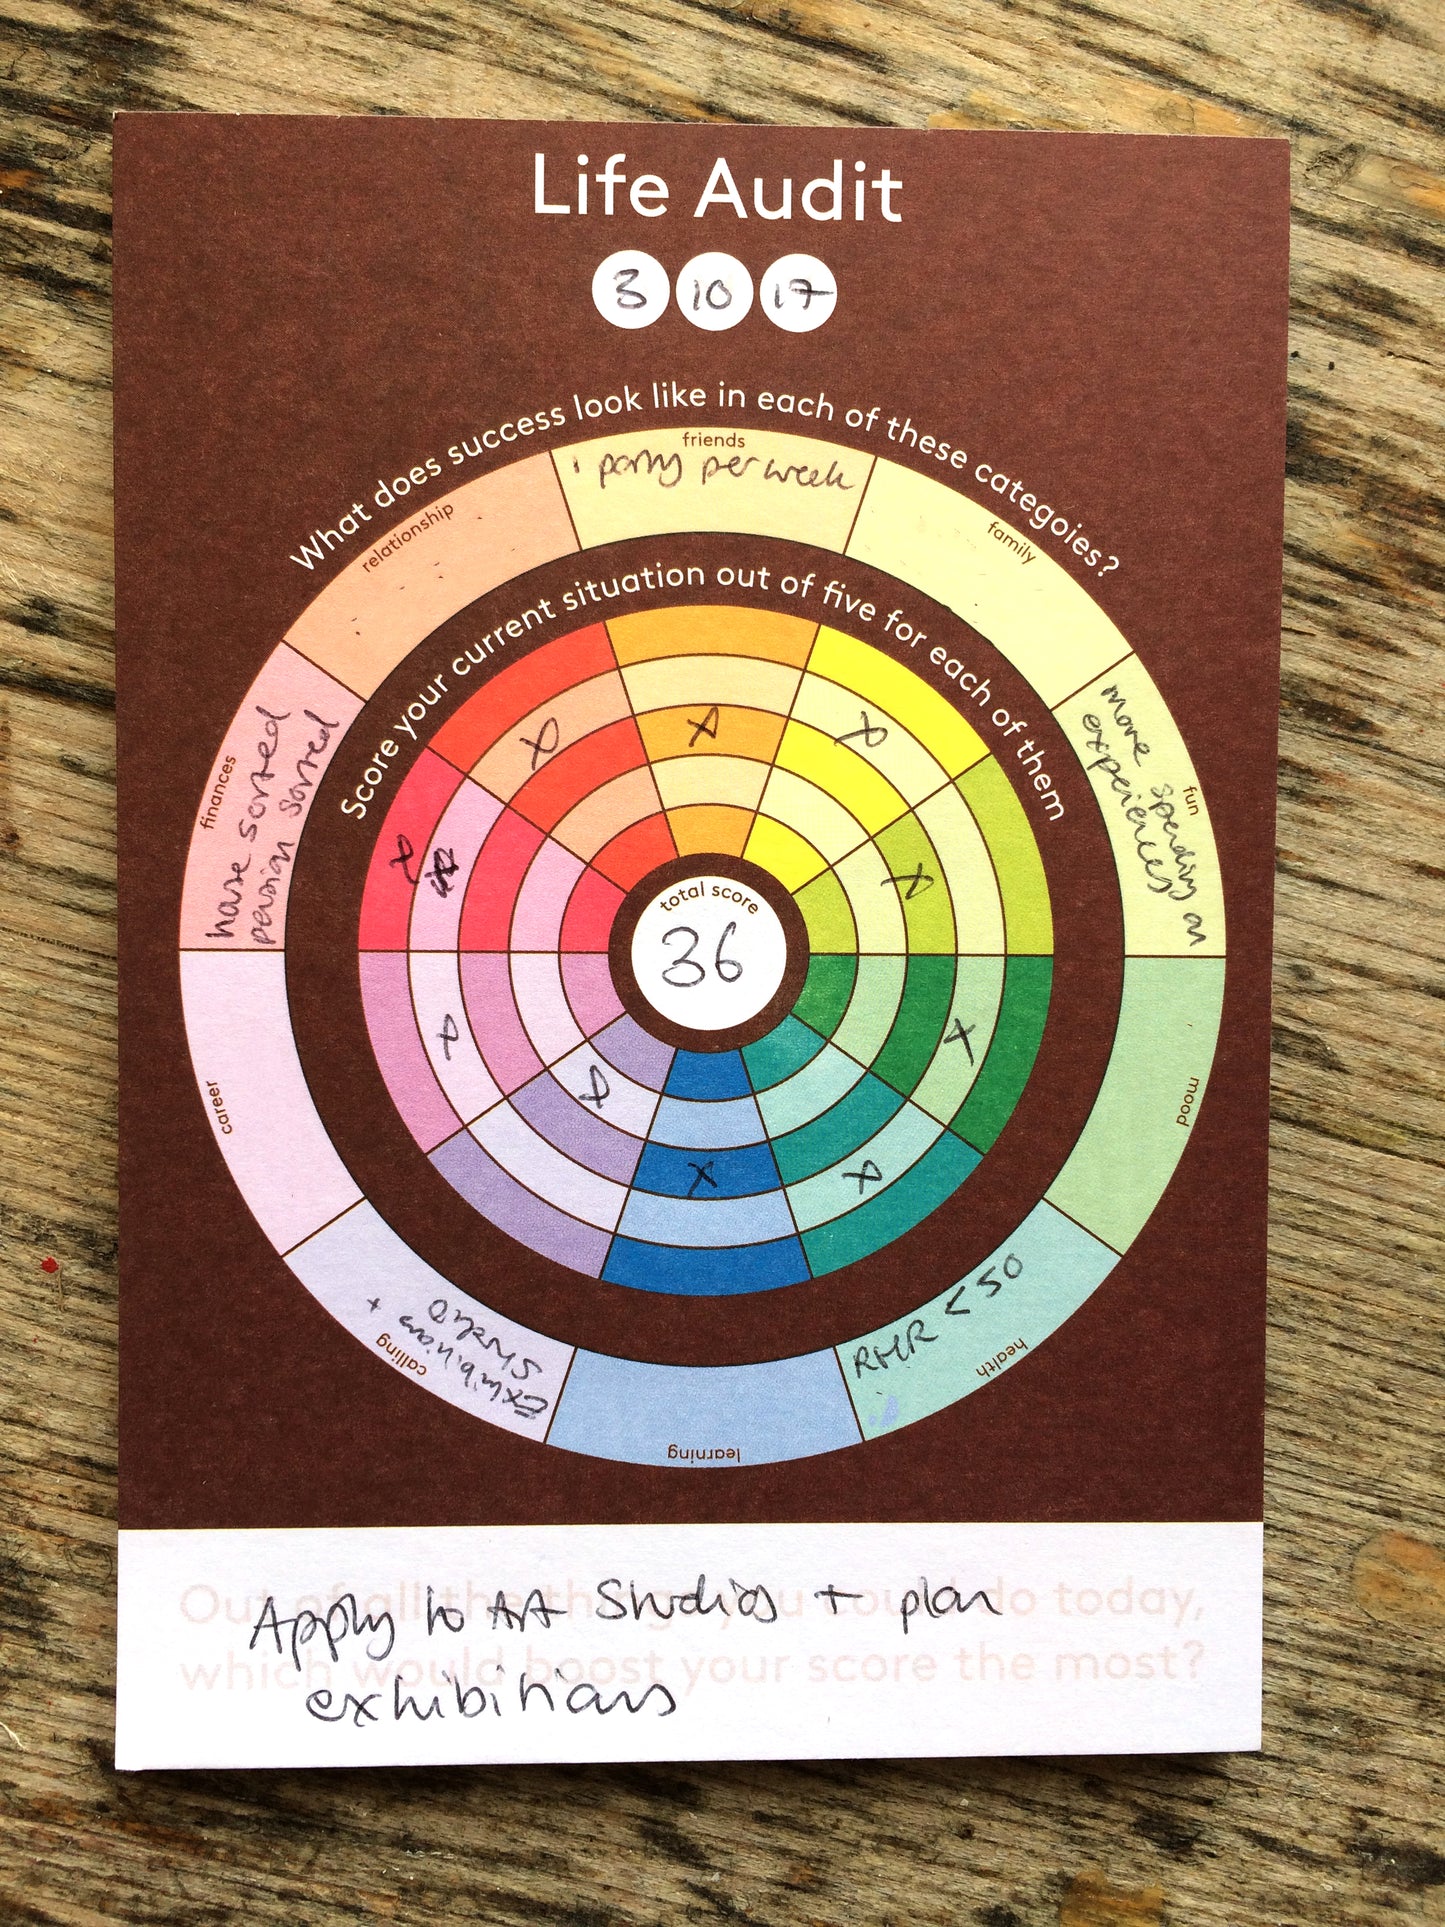 Life Audit
3 10 17
What does success look like in each of these categoies?
relationship
friends
1 party per week
family
fun
more spending on
experiences
mood
health
RHR < 50
learning
calling
Exhibitions +
Studio
career
finances
house sorted
pension sorted
Score your current situation out of five for each of them
total score
36
Out of all the things you could do today,
which would boost your score the most?
Apply to Art Studios + plan
exhibitions